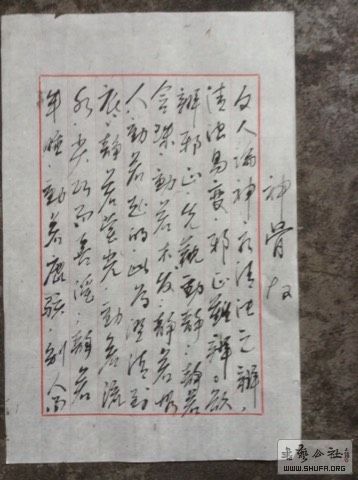 神骨
文人論神有清濁之辨,
清濁易變邪正難辨,欲
辨邪正,先觀動静,静若
含珠,動若木发,静若無
人,動若赴的,此為澄清到
底,静若萤光,動若流
水,尖巧而喜淫,静若
半睡,動若鹿駭,别才而
书艺公社
WWW.SHUFA.ORG